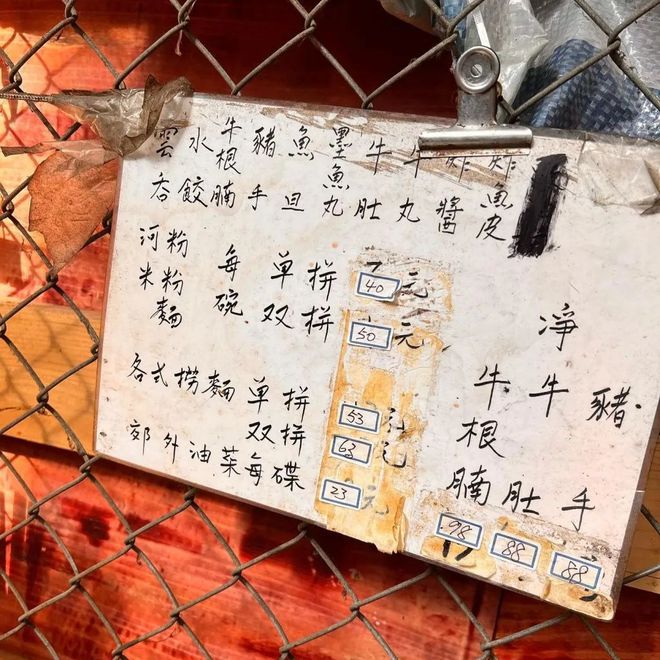 雲吞
水餃
牛根腩
豬手
魚旦
墨魚丸
牛肚
牛丸
炸醬
炸魚皮
河粉
米粉
麵
每碗
单拼 40元
双拼 50元
各式捞麵 单拼 53元
双拼 63元
郊外油菜每碟 23元
淨
牛根腩 98
牛肚 88
豬手 88